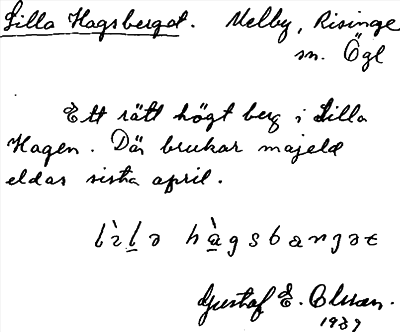 Lilla Hagsberget. Melby, Risinge
sn. Ögl
Ett rätt högt berg i Lilla
Hagen. Där brukar majeld
eldas sista april.
lìlə hàgsbærgət
Gustaf E. Olsson.
1939